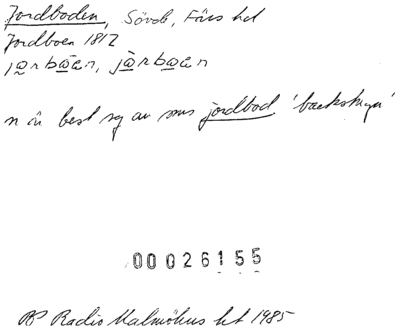 Jordboden, Sövde, Färs hd
Jordboen 1812
jo̱rbo̱en, jò̱rbo̱en
n är best sg av sms jordbod 'backstuga'
00026155
BP Radio Malmöhus ht 1985